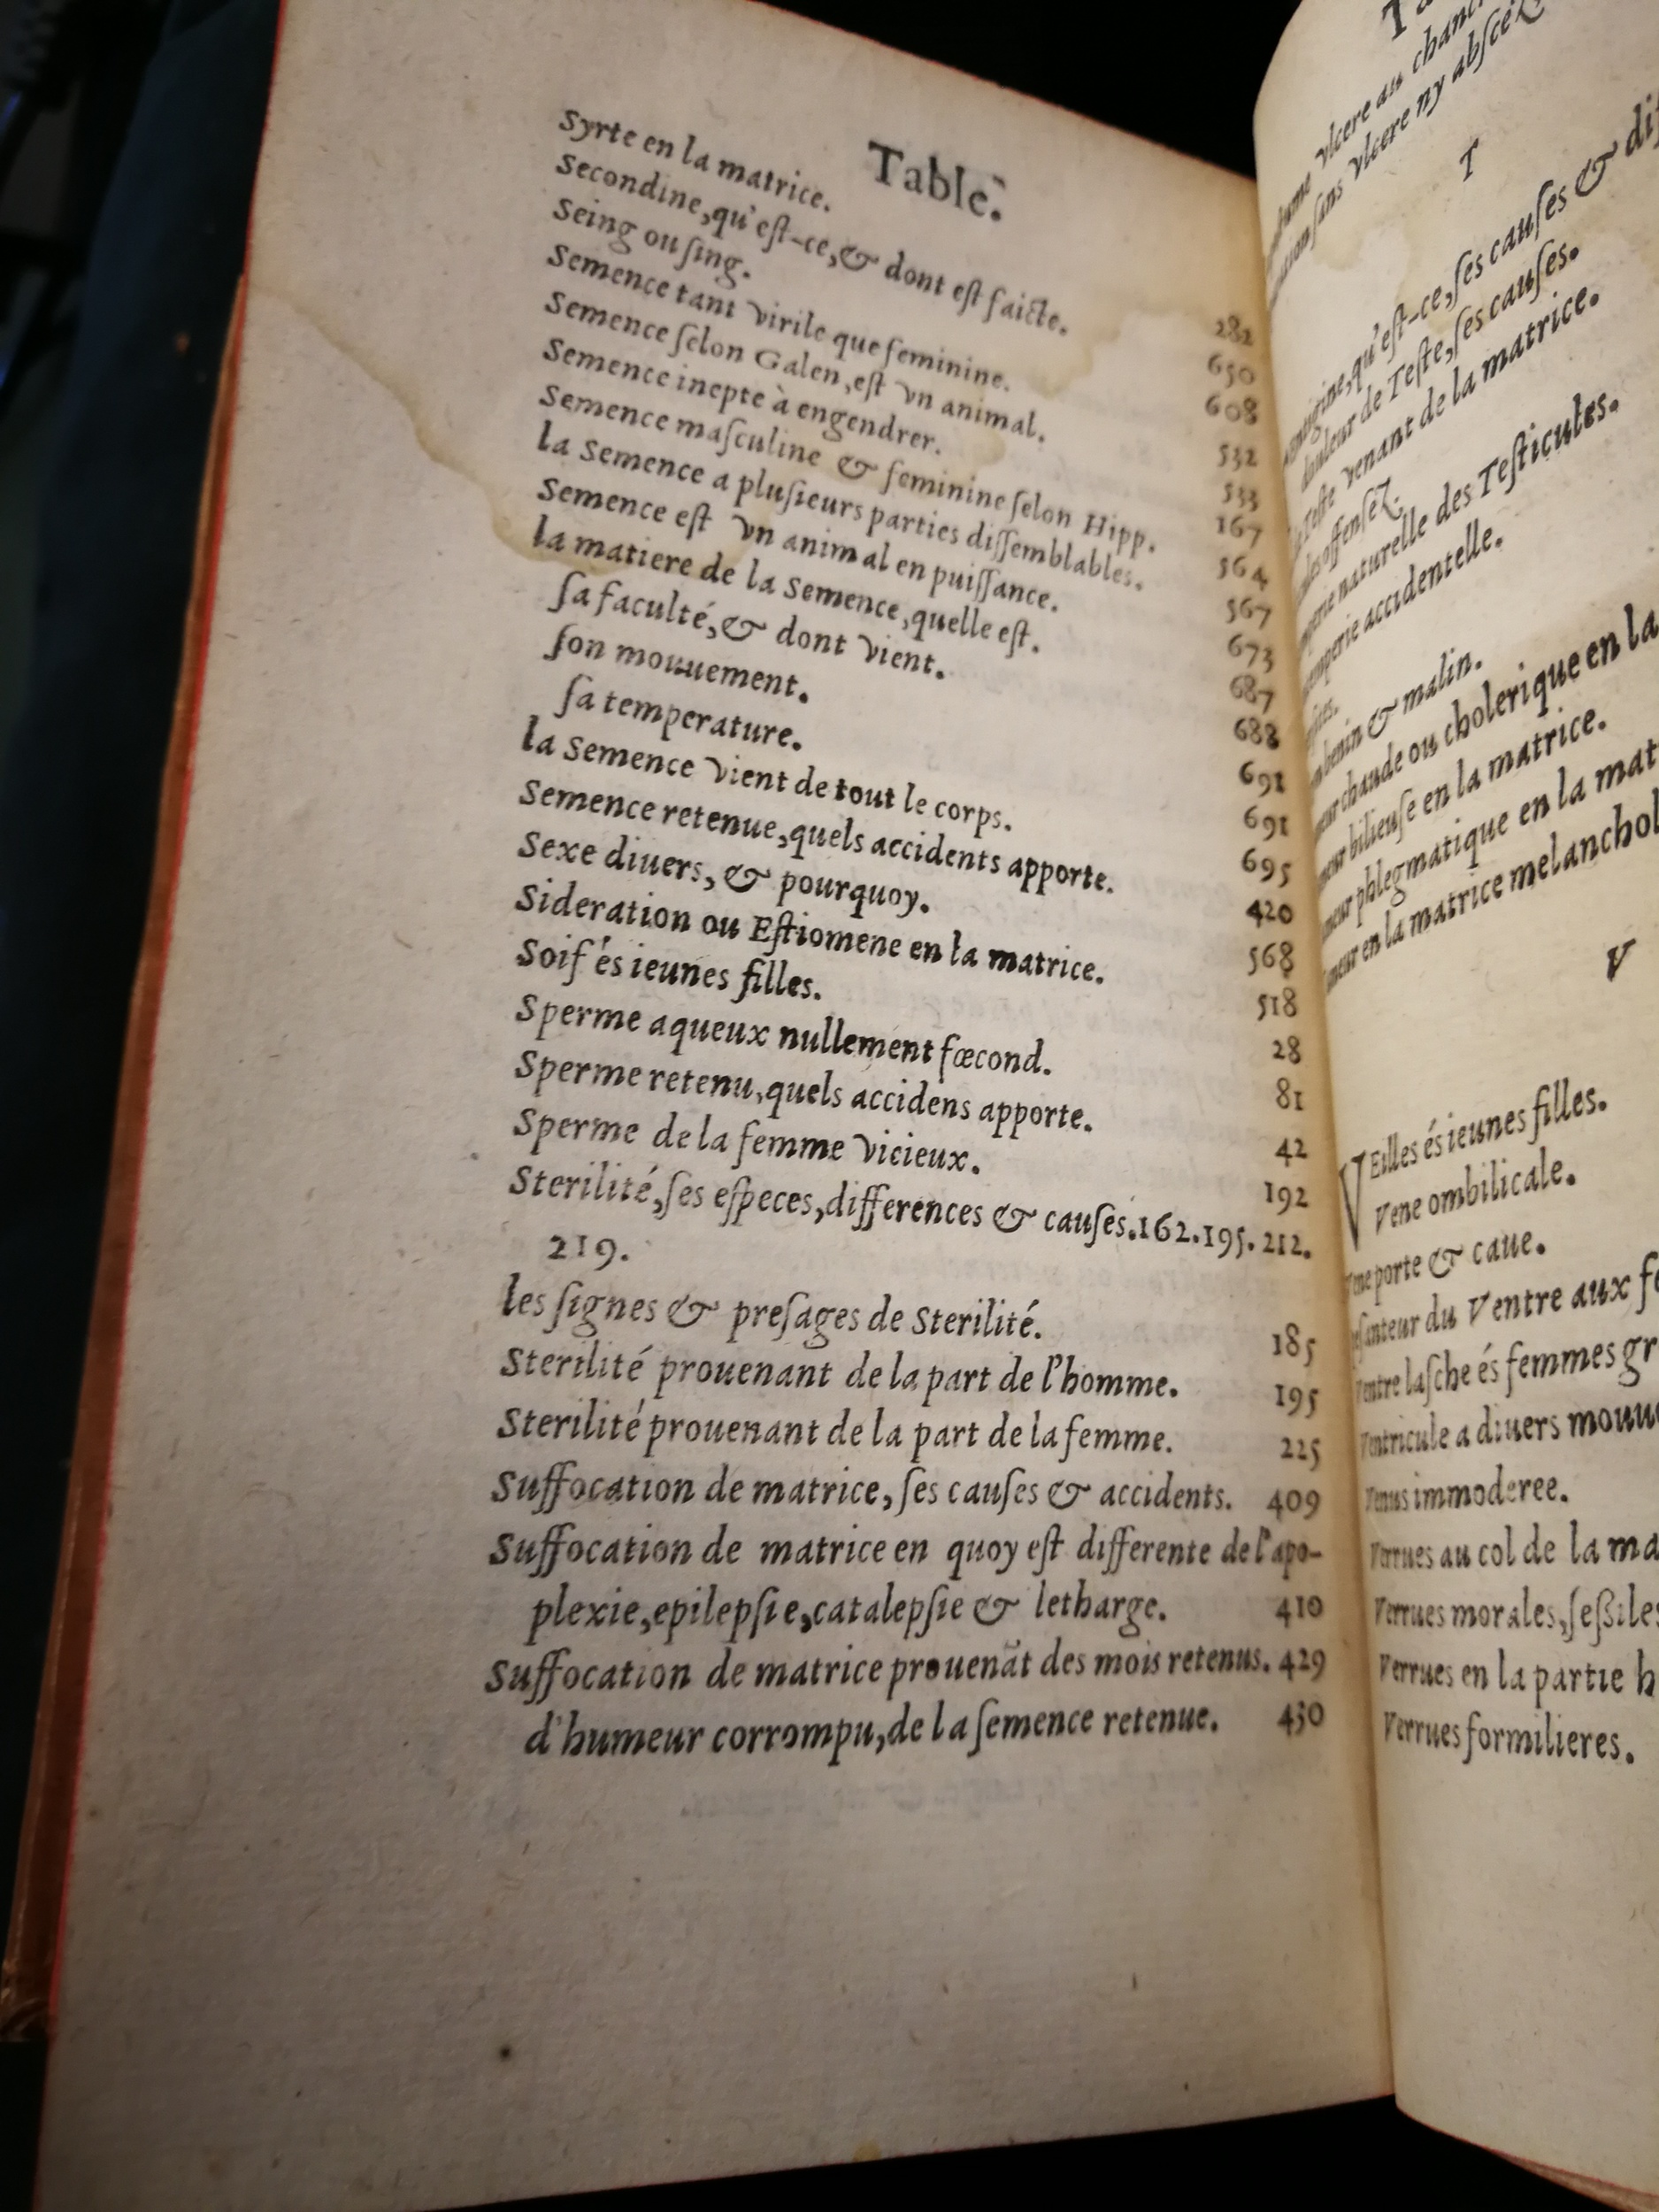 Table.
Syrte en la matrice. 282
Secondine, qu'eſt-ce, & dont eſt faicte. 650
Seing ou ſing. 608
Semence tant virile que feminine. 532
Semence ſelon Galen, eſt vn animal. 533
Semence inepte à engendrer. 167
Semence maſculine & feminine ſelon Hipp. 564
la Semence a pluſieurs parties diſſemblables. 567
Semence eſt vn animal en puiſſance. 673
la matiere de la Semence, quelle eſt. 687
ſa faculté, & dont vient. 688
ſon mouuement. 691
ſa temperature. 691
la Semence vient de tout le corps. 695
Semence retenue, quels accidents apporte. 420
Sexe diuers, & pourquoy. 568
Sideration ou Eſtiomene en la matrice. 518
Soif és ieunes filles. 28
Sperme aqueux nullement fœcond. 81
Sperme retenu, quels accidens apporte. 42
Sperme de la femme vicieux. 192
Sterilité, ſes eſpeces, differences & cauſes. 162. 195. 212.
219.
les ſignes & preſages de Sterilité. 185
Sterilité prouenant de la part de l'homme. 195
Sterilité prouenant de la part de la femme. 225
Suffocation de matrice, ſes cauſes & accidents. 409
Suffocation de matrice en quoy eſt differente de l'apo-
plexie, epilepſie, catalepſie & letharge. 410
Suffocation de matrice prouenãt des mois retenus. 429
d'humeur corrompu, de la ſemence retenue. 430
vlcere au
ſans vlcere ny abſcez
T
qu'eſt-ce, ſes cauſes &
douleur de Teſte, ſes cauſes.
Teſte venant de la matrice.
offenſez.
naturelle des Teſticules.
accidentelle.
benin & malin.
chaude ou cholerique en la
bilieuſe en la matrice.
phlegmatique en la
en la matrice
V
VEilles és ieunes filles.
Vene ombilicale.
porte & caue.
du Ventre aux
Ventre laſche és femmes
Ventricule a diuers
Venus immoderee.
Verrues au col de la
Verrues morales, ſeßiles
Verrues en la partie
Verrues formilieres.